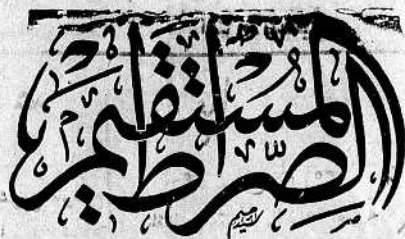 الصِّرَاط المُسْتَقِيم